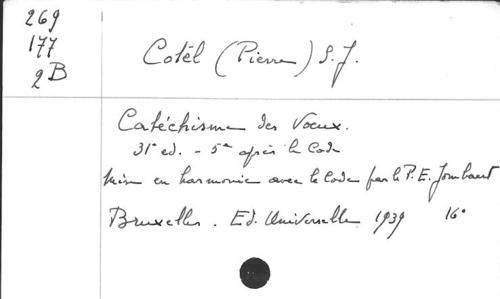 269
177
2B
Cotel (Pierre) S.J.
Catéchisme des Voeux.
31e ed. - 5e après le Code
Mise en harmonie avec le Code par le P. E. Jombart
Bruxelles. Ed. Universelle 1939 16°